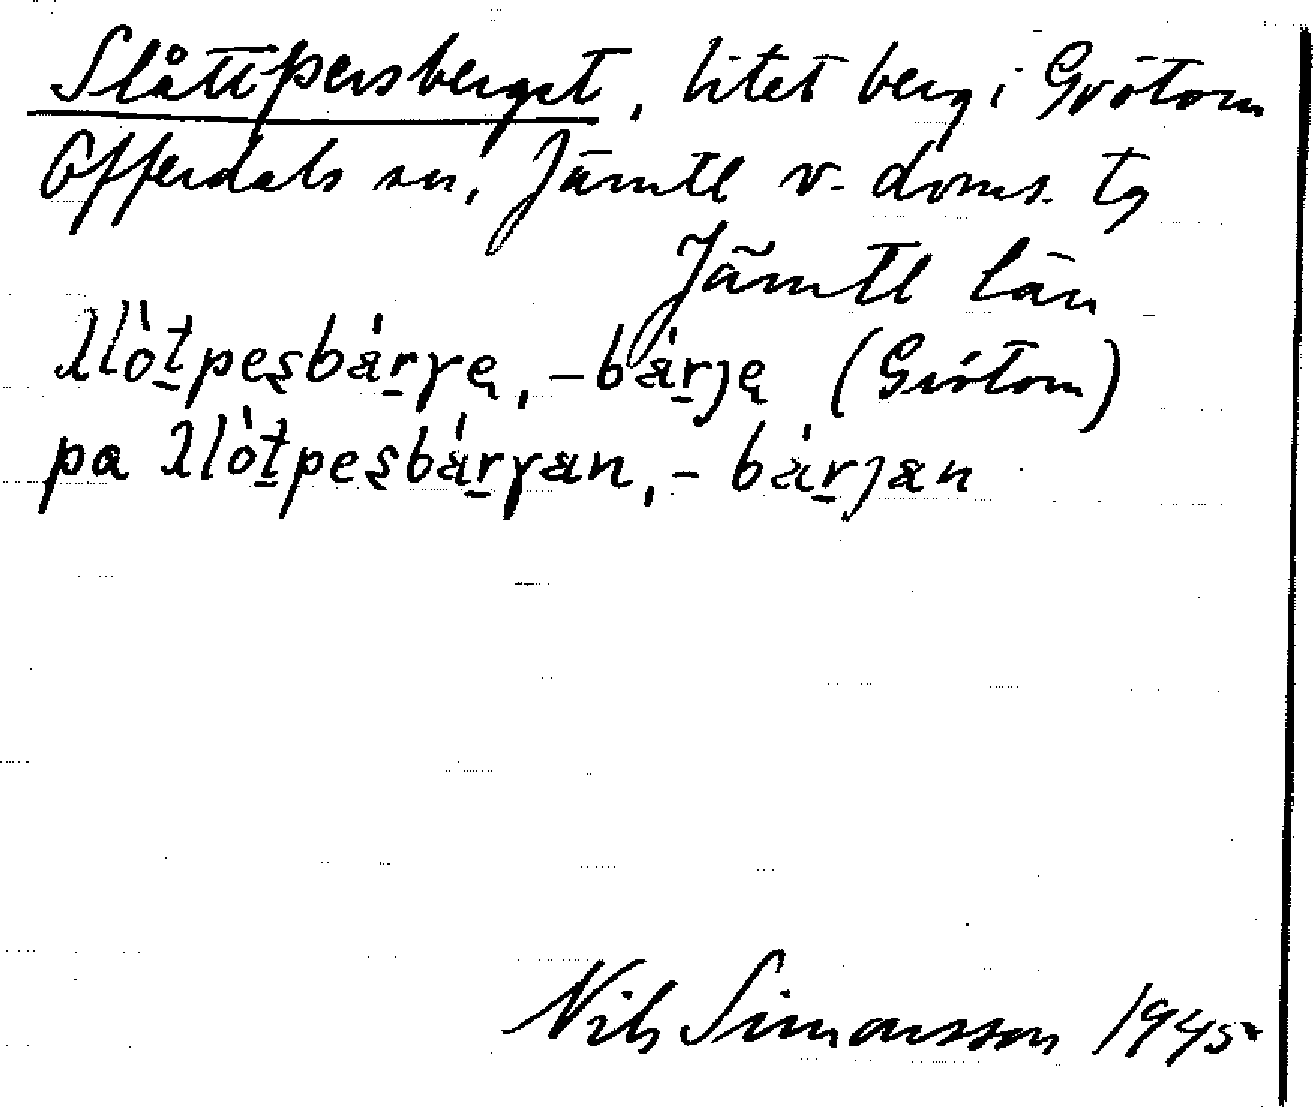 Slåttpersberget, litet berg i Grötom
Offerdals sn, Jämtl v. doms. tg
Jämtl län
λlòt̠peʂbár̠γę, -bár̠ję (Grötom)
pa λlòt̠peʂbár̠γan, -bár̠jan
Nils Simonsson 1945